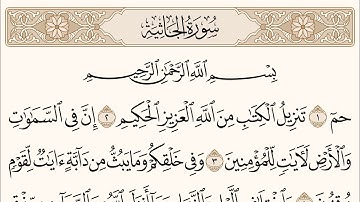 سُورَةُ الجَاثِيَةِ
بِسۡمِ ٱللَّهِ ٱلرَّحۡمَٰنِ ٱلرَّحِيمِ
حمٓ ١ تَنزِيلُ ٱلۡكِتَٰبِ مِنَ ٱللَّهِ ٱلۡعَزِيزِ ٱلۡحَكِيمِ ٢ إِنَّ فِي ٱلسَّمَٰوَٰتِ
وَٱلۡأَرۡضِ لَأٓيَٰتٖ لِّلۡمُؤۡمِنِينَ ٣ وَفِي خَلۡقِكُمۡ وَمَا يَبُثُّ مِن دَآبَّةٍ ءَايَٰتٞ لِّقَوۡمٖ